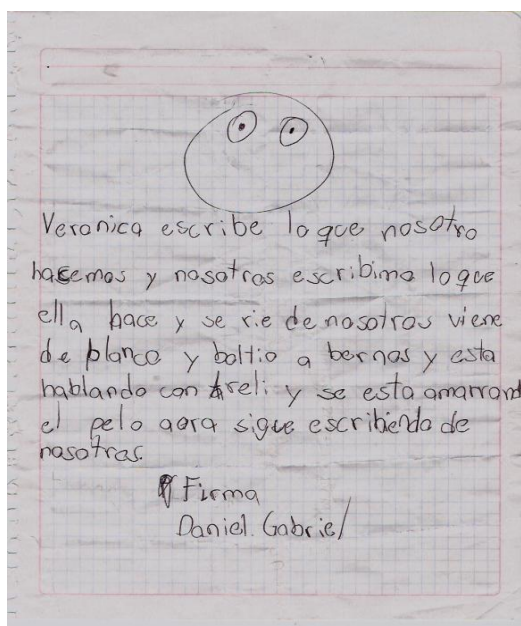 Veronica escribe lo que nosotro
hacemos y nosotros escribimo loque
ella hace y se rie de nosotros viene
de blanco y boltio a bernos y esta
hablando con Areli y se esta amarrand
el pelo aora sigue escribiendo de
nosotros.
Firma
Daniel. Gabriel